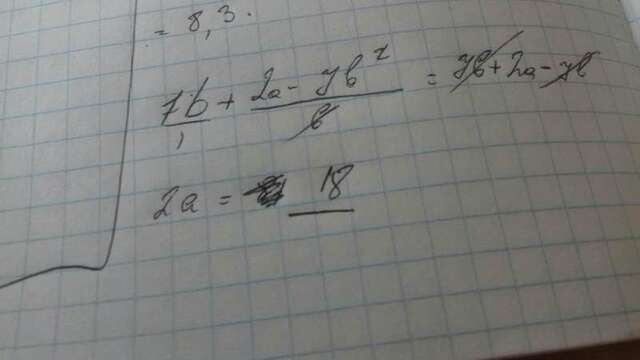 = 8,3.
7b/1 + (2a - 7b²)/b = 7b + 2a - 7b
2a = 18